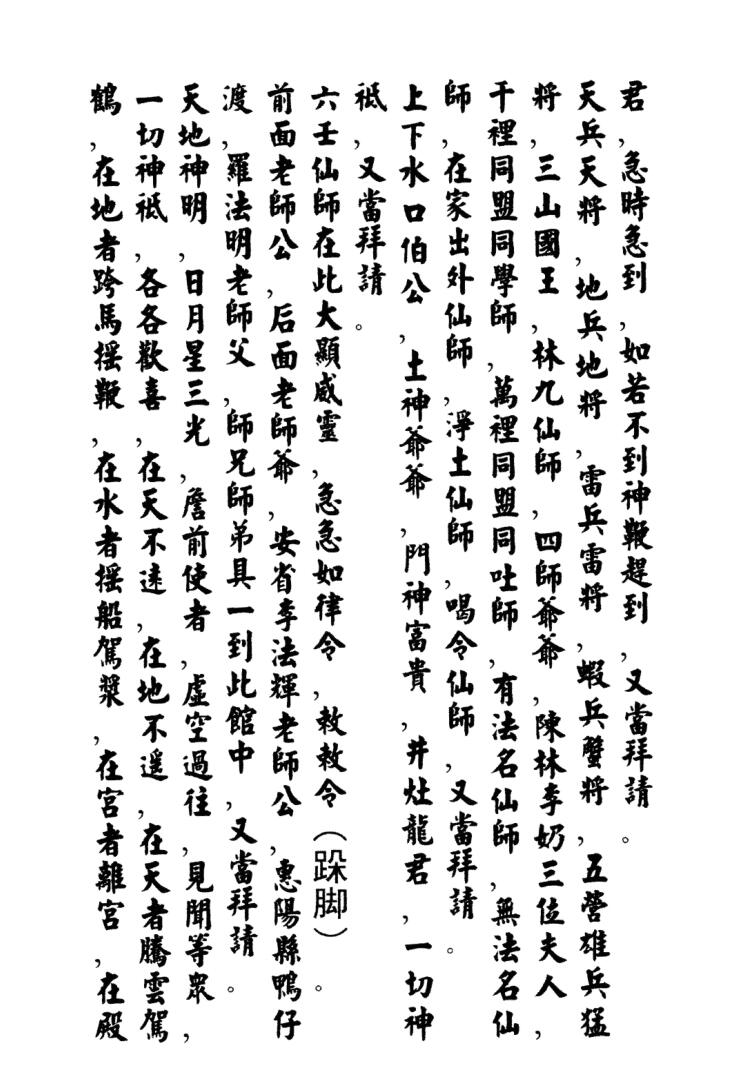 君，急時急到，如若不到神鞭趕到，又當拜請。
天兵天將，地兵地將，雷兵雷將，蝦兵蟹將，五營雄兵猛
將，三山國王，林九仙師，四師爺爺，陳林李奶三位夫人，
千裡同盟同學師，萬裡同盟同吐師，有法名仙師，無法名仙
師，在家出外仙師，淨土仙師，喝令仙師，又當拜請。
上下水口伯公，土神爺爺，門神富貴，井灶龍君，一切神
祗，又當拜請。
六壬仙師在此大顯威靈，急急如律令，敕敕令（跺脚）。
前面老師公，后面老師爺，安省李法輝老師公，惠陽縣鴨仔
渡，羅法明老師父，師兄師弟具一到此館中，又當拜請。
天地神明，日月星三光，詹前使者，虛空過往，見聞等眾，
一切神祗，各各歡喜，在天不遠，在地不遥，在天者騰雲駕
鶴，在地者跨馬摇鞭，在水者摇船駕槳，在宮者離宮，在殿